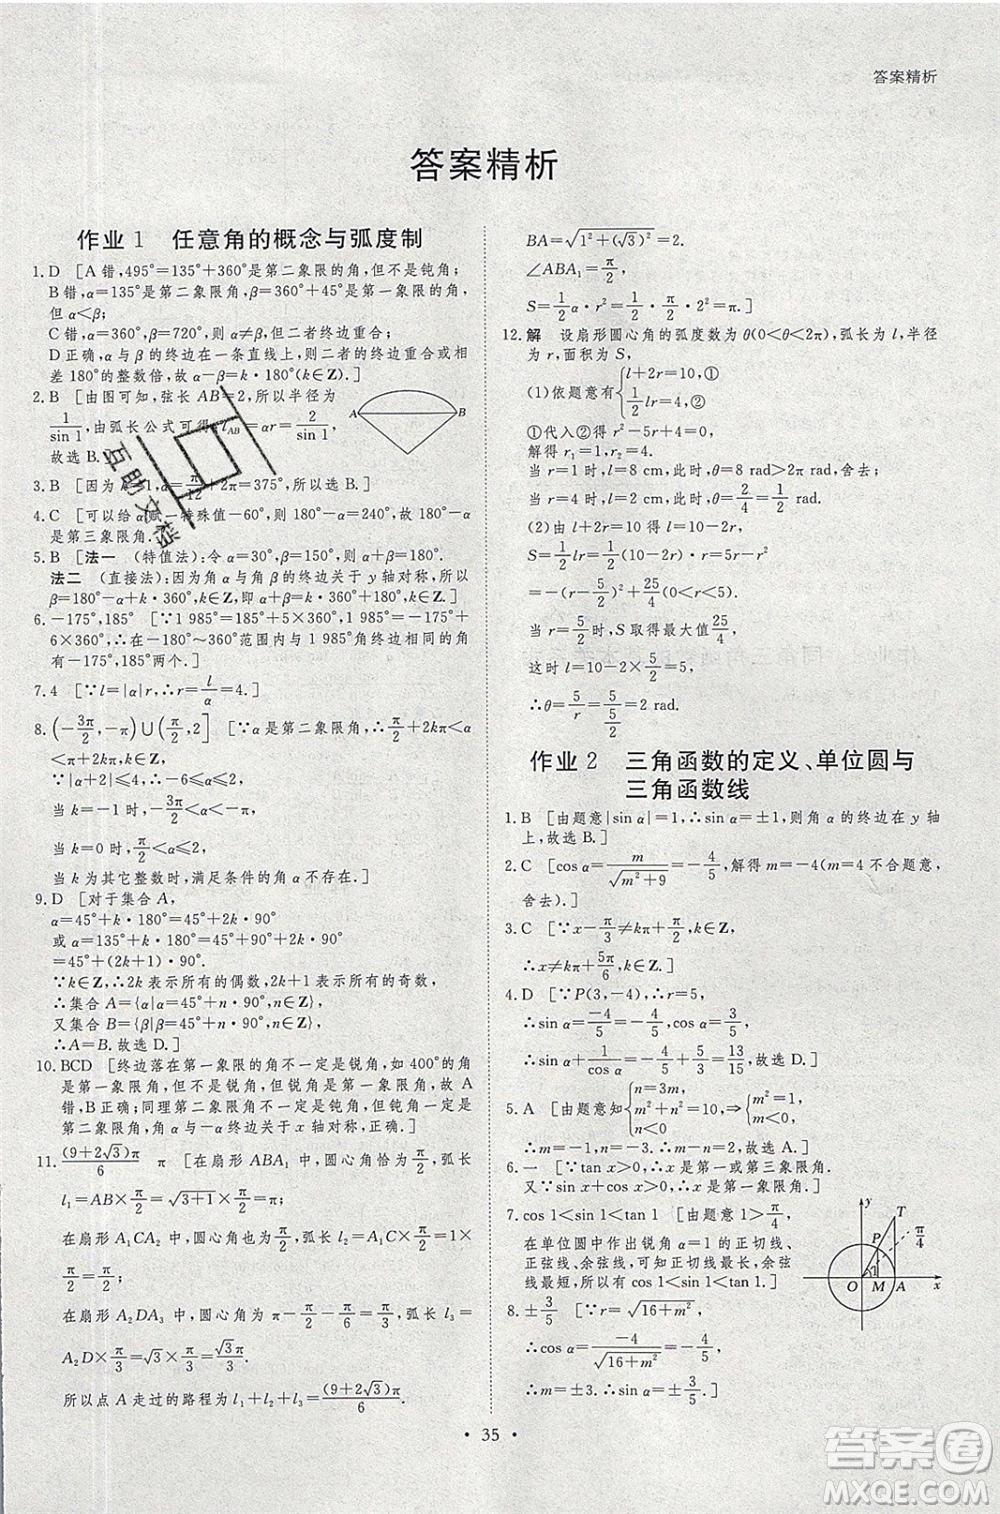 答案精析
答案精析
作业1 任意角的概念与弧度制
1.D [A错,495°=135°+360°是第二象限的角,但不是钝角;
B错,α=135°是第二象限角,β=360°+45°是第一象限角,
但α<β;
C错,α=360°,β=720°,则α≠β,但二者终边重合;
D正确,α与β的终边在一条直线上,则二者的终边重合或相
差180°的整数倍,故α-β=k·180°(k∈Z).]
2.B [由图可知,弦长AB=2,所以半径为
1/sin 1,由弧长公式可得l_AB=αr=2/sin 1,
故选B.]
A B
3.B [因为k=1,α=π/12+2π=375°,所以选B.]
4.C [可以给α赋一特殊值-60°,则180°-α=240°,故180°-α
是第三象限角.]
5.B [法一 (特值法):令α=30°,β=150°,则α+β=180°.
法二 (直接法):因为角α与角β的终边关于y轴对称,所以
β=180°-α+k·360°(k∈Z),即α+β=180°+k·360°,k∈Z.]
6.-175°,185° [∵1 985°=185°+5×360°;1 985°=-175°+
6×360°,∴在-180°~360°范围内与1 985°角终边相同的角
有-175°,185°两个.]
7.4 [∵l=|α|r,∴r=l/α=4.]
8.(-3π/2,-π)∪(π/2,2] [∵α是第二象限角,∴π/2+2kπ<α
<π+2kπ,k∈Z.
∵|α+2|≤4,∴-6≤α≤2,
当k=-1时,-3π/2<α<-π,
当k=0时,π/2<α≤2,
当k为其它整数时,满足条件的角α不存在.]
9.D [对于集合A,
α=45°+k·180°=45°+2k·90°
或α=135°+k·180°=45°+90°+2k·90°
=45°+(2k+1)·90°.
∵k∈Z,∴2k表示所有的偶数,2k+1表示所有的奇数,
∴集合A={α|α=45°+n·90°,n∈Z},
又集合B={β|β=45°+k·90°,k∈Z},
∴A=B.故选D.]
10.BCD [终边落在第一象限的角不一定是锐角,如400°的角
是第一象限角,但不是锐角,但锐角一定是第一象限角,故A
错,B正确;同理第二象限角不一定是钝角,但钝角一定是第
二象限角,C正确,角α与-α终边关于x轴对称,D正确.]
11.(9+2√3)π/6 π [在扇形ABA₁中,圆心角恰为π/2,弧长
l₁=AB×π/2=√(3+1)×π/2=π,
在扇形A₁CA₂中,圆心角也为π/2,弧长l₂=A₁C×π/2=1×
π/2=π/2,
在扇形A₂DA₃中,圆心角为π-π/2-π/6=π/3,弧长l₃=
A₂D×π/3=√3×π/3=√3/3π,
所以点A走过的路程为l₁+l₂+l₃=(9+2√3)π/6.
BA=√(1²+(√3)²)=2.
∠ABA₁=π/2,
S=1/2α·r²=1/2·π/2·2²=π.]
12.解 设扇形圆心角的弧度数为θ(0<θ<2π),弧长为l,半径
为r,面积为S,
(1)依题意有{l+2r=10,① 1/2lr=4,②
①代入②得r²-5r+4=0,
解得r₁=1,r₂=4.
当r=1时,l=8 cm,此时,θ=8 rad>2π rad,舍去;
当r=4时,l=2 cm,此时,θ=2/4=1/2 rad.
(2)由l+2r=10得l=10-2r,
S=1/2lr=1/2(10-2r)·r=5r-r²
=-(r-5/2)²+25/4(0<r<5).
当r=5/2时,S取得最大值25/4,
这时l=10-2×5/2=5,
∴θ=l/r=5/(5/2)=2 rad.
作业2 三角函数的定义、单位圆与
三角函数线
1.B [由题意|sin α|=1,∴sin α=±1,则角α的终边在y轴
上,故选B.]
2.C [cos α=m/√(m²+9)=-4/5,解得m=-4(m=4不合题意,
舍去).]
3.C [∵x-π/3≠kπ+π/2,k∈Z,
∴x≠kπ+5π/6,k∈Z.]
4.D [∵P(3,-4),∴r=5,
∴sin α=-4/5=-4/5,cos α=3/5,
∴1/5-sin α·cos α=1/5+12/25=... 
5.A [由题意知{n=3m, m²+n²=10, n<0⇒{m=-1, n=-3.
∴m-n=-1+3=2.故选A.]
6.一 [∵tan x>0,∴x是第一或第三象限角.
又∵sin x>0,∴x是第一象限角.]
7.cos 1<sin 1<tan 1 [由题意1>π/4,
在单位圆中作出锐角α=1的正切线、
正弦线、余弦线,正切线最长,余弦
线最短,所以有cos 1<sin 1<tan 1.]
y T P π/4 1 O M A x
8.±3/5 [∵r=√(16+m²),
∴cos α=-4/√(16+m²)=-4/5,
∴m=±3.∴sin α=±3/5.]
35
互助文档
答案卷
MXQE.COM